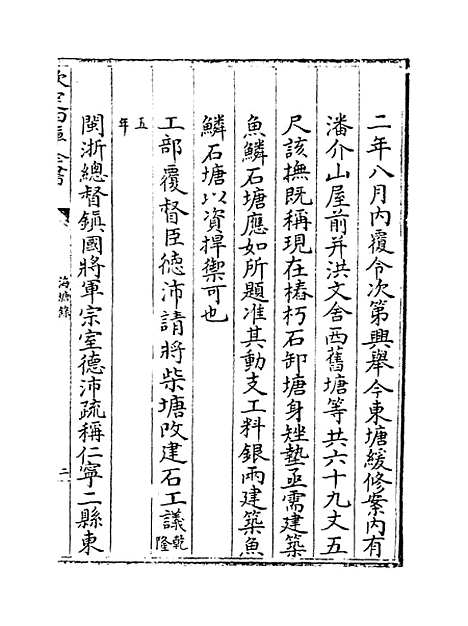 二年八月内覆令次第興舉今東塘緩修案内有
潘介山屋前并洪文舍西舊塘等共六十九丈五
尺該撫既稱現在樁朽石卸塘身矬墊亟需建築
魚鱗石塘應如所題准其動支工料銀兩建築魚
鱗石塘以資捍禦可也
工部覆督臣德沛請將柴塘改建石工議乾隆
五年
閩浙總督鎮國將軍宗室德沛疏稱仁寧二縣東
欽定四庫全書
海塘錄